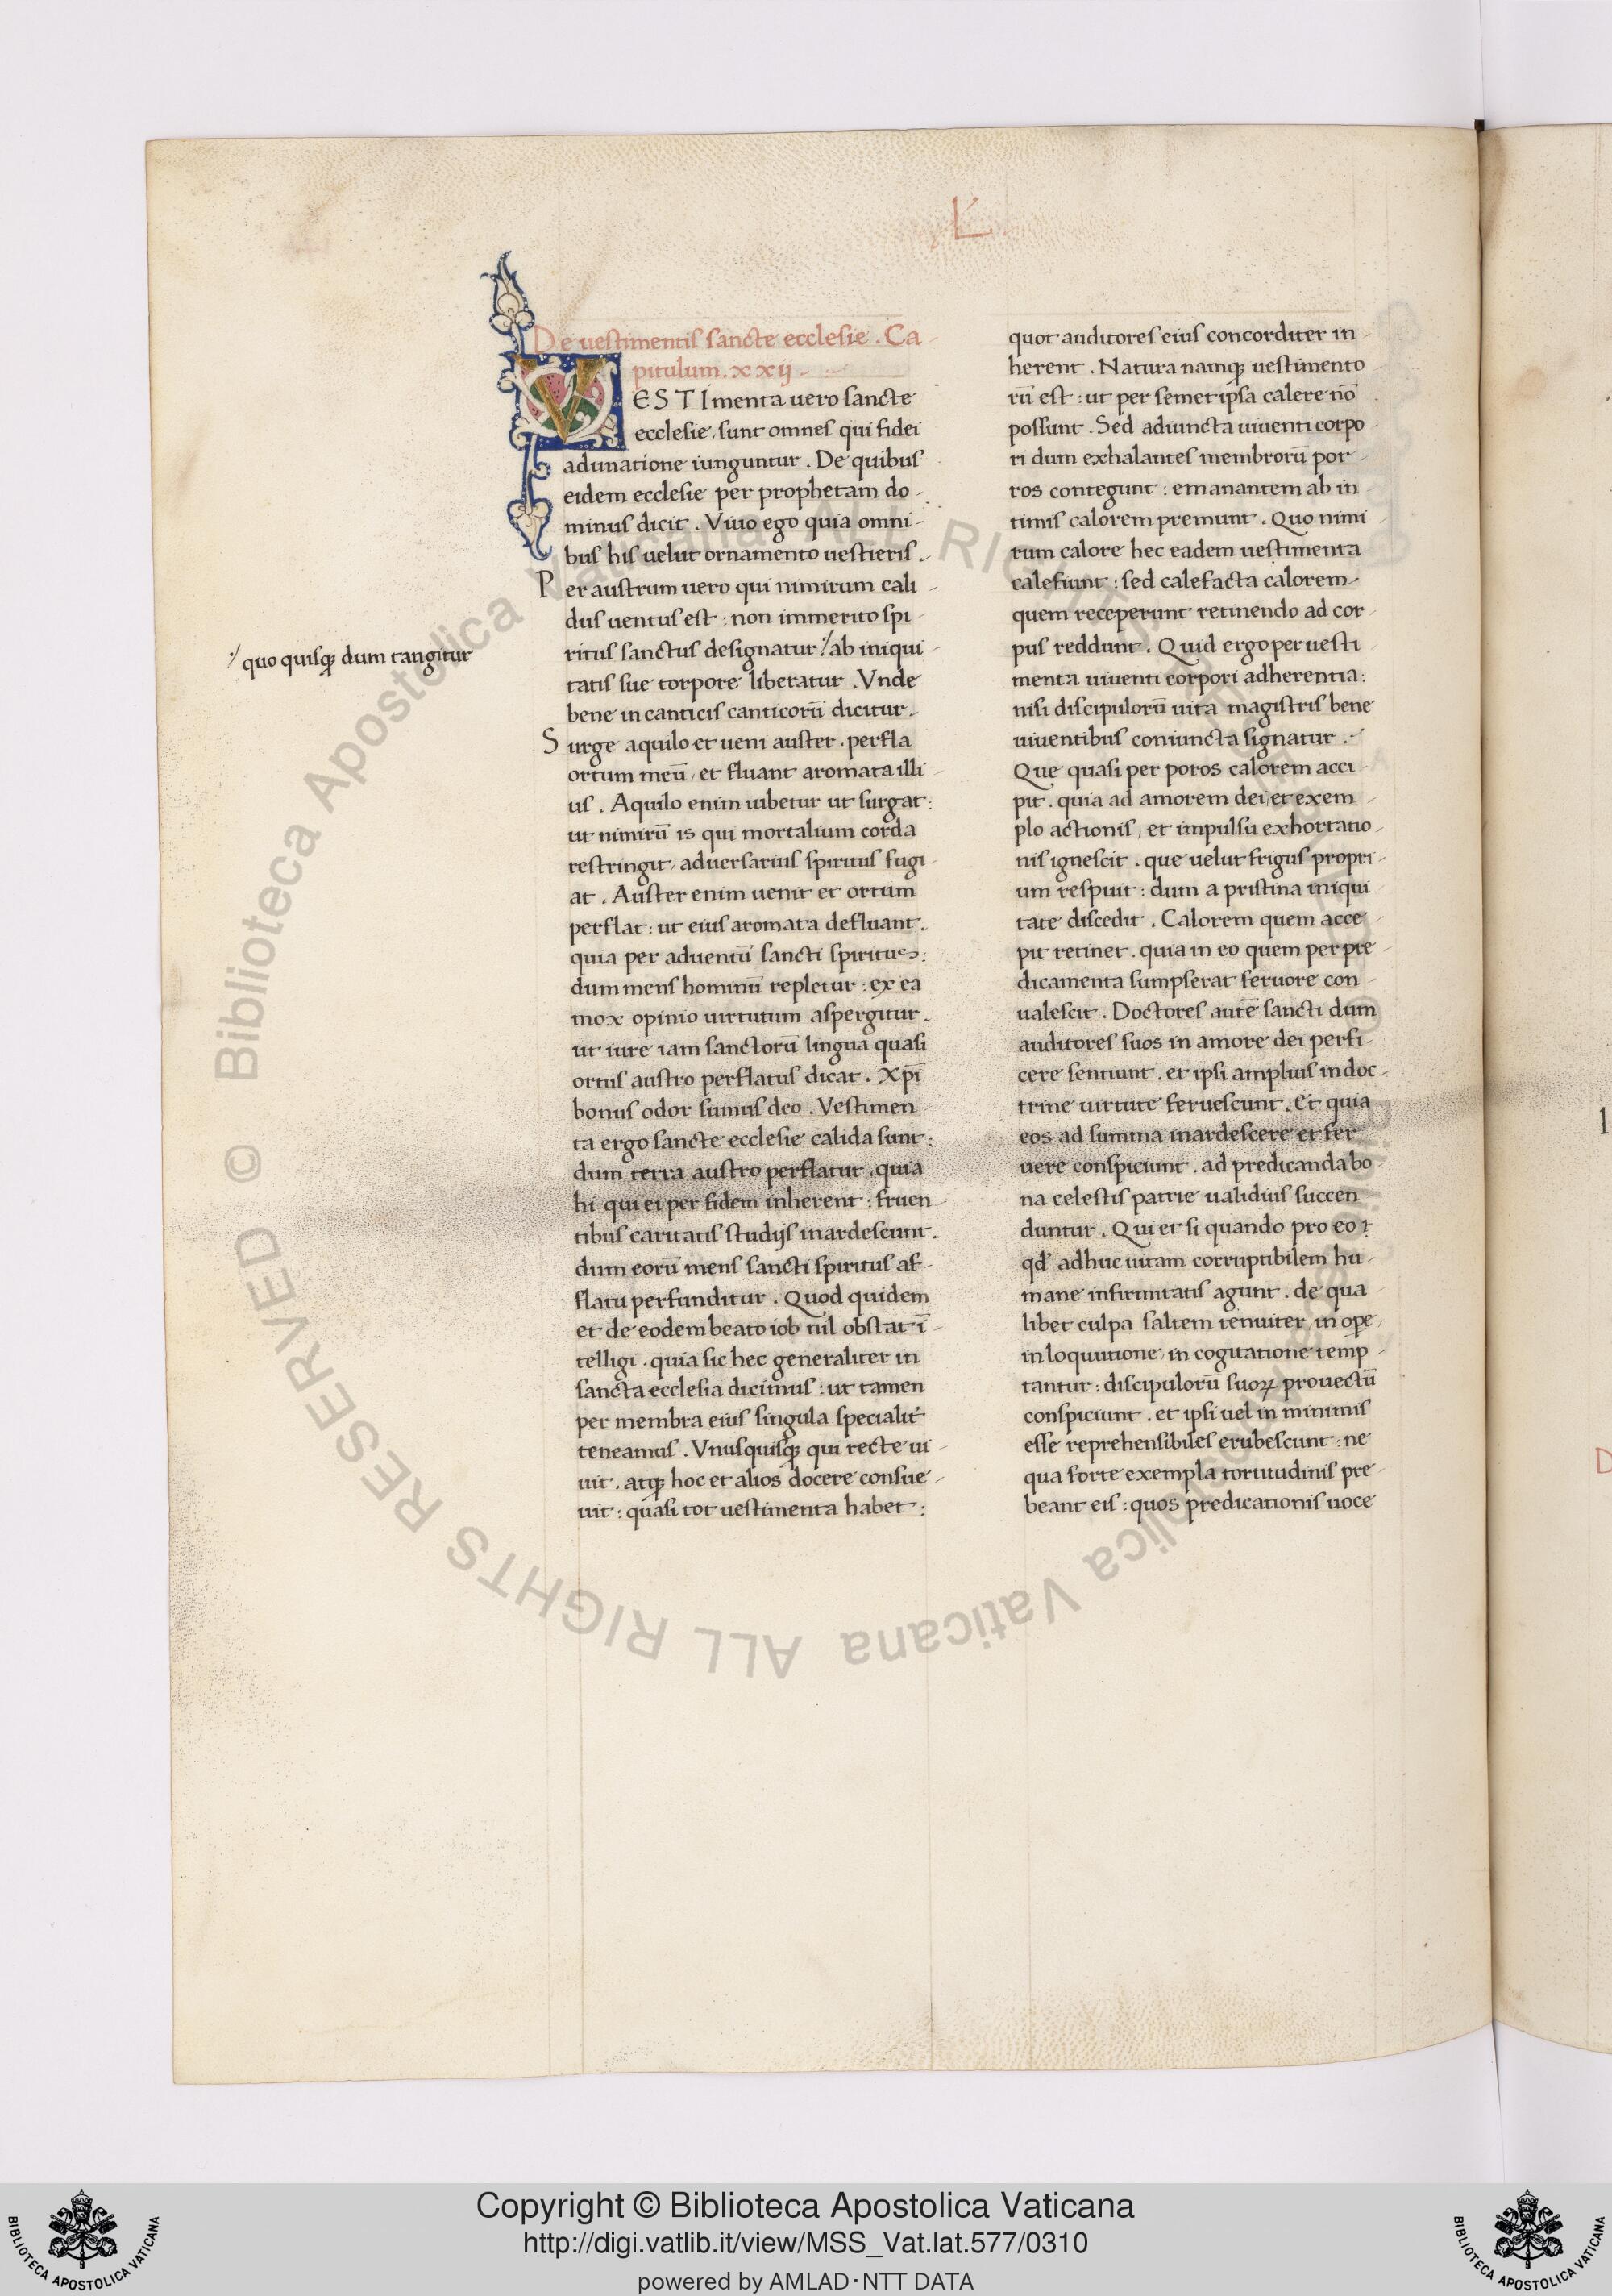 L
De uestimentis sancte ecclesie . Ca
pitulum . xxij
VESTImenta uero sancte
ecclesie, sunt omnes qui fidei
adunatione iunguntur . De quibus
eidem ecclesie per prophetam do
minus dicit . Viuo ego quia omni
bus his uelut ornamento uestieris .
Per austrum uero qui nimirum cali
dus uentus est : non immerito spi
quo quisq; dum tangitur
ritus sanctus designatur / ab iniqui
tatis sue torpore liberatur . Vnde
bene in canticis canticorū dicitur .
Surge aquilo et ueni auster . perfla
ortum meū, et fluant aromata illi
us . Aquilo enim iubetur ut surgat :
ut nimirū is qui mortalium corda
restringit, aduersarius spiritus fugi
at . Auster enim uenit et ortum
perflat : ut eius aromata defluant .
quia per aduentū sancti spiritus :
dum mens hominū repletur : ex ea
mox opinio uirtutum aspergitur .
ut iure iam sanctorū lingua quasi
ortus austro perflatus dicat . Xpī
bonus odor sumus deo . Vestimen
ta ergo sancte ecclesie calida sunt :
dum terra austro perflatur . quia
hi qui ei per fidem inherent : fruen
tibus caritatis studijs inardescunt .
dum eorū mens sancti spiritus af
flatu perfunditur . Quod quidem
et de eodem beato iob nil obstat ī
telligi . quia sic hec generaliter in
sancta ecclesia dicimus : ut tamen
per membra eius singula specialit̄
teneamus . Vnusquisq; qui recte ui
uit . atq; hoc et alios docere consue
uit : quasi tot uestimenta habet :
quot auditores eius concorditer in
herent . Natura namq; uestimento
rū est : ut per semet ipsa calere nō
possunt . Sed adiuncta uiuenti corpo
ri dum exhalantes membrorū por
ros contegunt : emanantem ab in
timis calorem premunt . Quo nimi
rum calore hec eadem uestimenta
calefiunt : sed calefacta calorem
quem receperunt retinendo ad cor
pus reddunt . Quid ergo per uesti
menta uiuenti corpori adherentia :
nisi discipulorū uita magistris bene
uiuentibus coniuncta signatur .
Que quasi per poros calorem acci
pit . quia ad amorem dei, et exem
plo actionis, et impulsu exhortatio
nis ignescit . que uelut frigus propri
um respuit : dum a pristina iniqui
tate discedit . Calorem quem acce
pit retinet . quia in eo quem per pre
dicamenta sumpserat feruore con
ualescit . Doctores autē sancti dum
auditores suos in amore dei perfi
cere sentiunt . et ipsi amplius in doc
trine uirtute feruescunt . Et quia
eos ad summa inardescere et fer
uere conspiciunt . ad predicanda bo
na celestis patrie ualidius succen
duntur . Qui et si quando pro eo
qđ adhuc uitam corruptibilem hu
mane infirmitatis agunt . de qua
libet culpa saltem tenuiter, in ope,
in loquutione, in cogitatione temp
tantur : discipulorū suoꝝ prouectū
conspiciunt . et ipsi uel in minimis
esse reprehensibiles erubescunt : ne
qua forte exempla tortitudinis pre
beant eis : quos predicationis uoce
Biblioteca Apostolica Vaticana ALL RIGHTS RESERVED ©
BIBLIOTECA APOSTOLICA VATICANA
Copyright © Biblioteca Apostolica Vaticana
http://digi.vatlib.it/view/MSS_Vat.lat.577/0310
powered by AMLAD·NTT DATA
BIBLIOTECA APOSTOLICA VATICANA